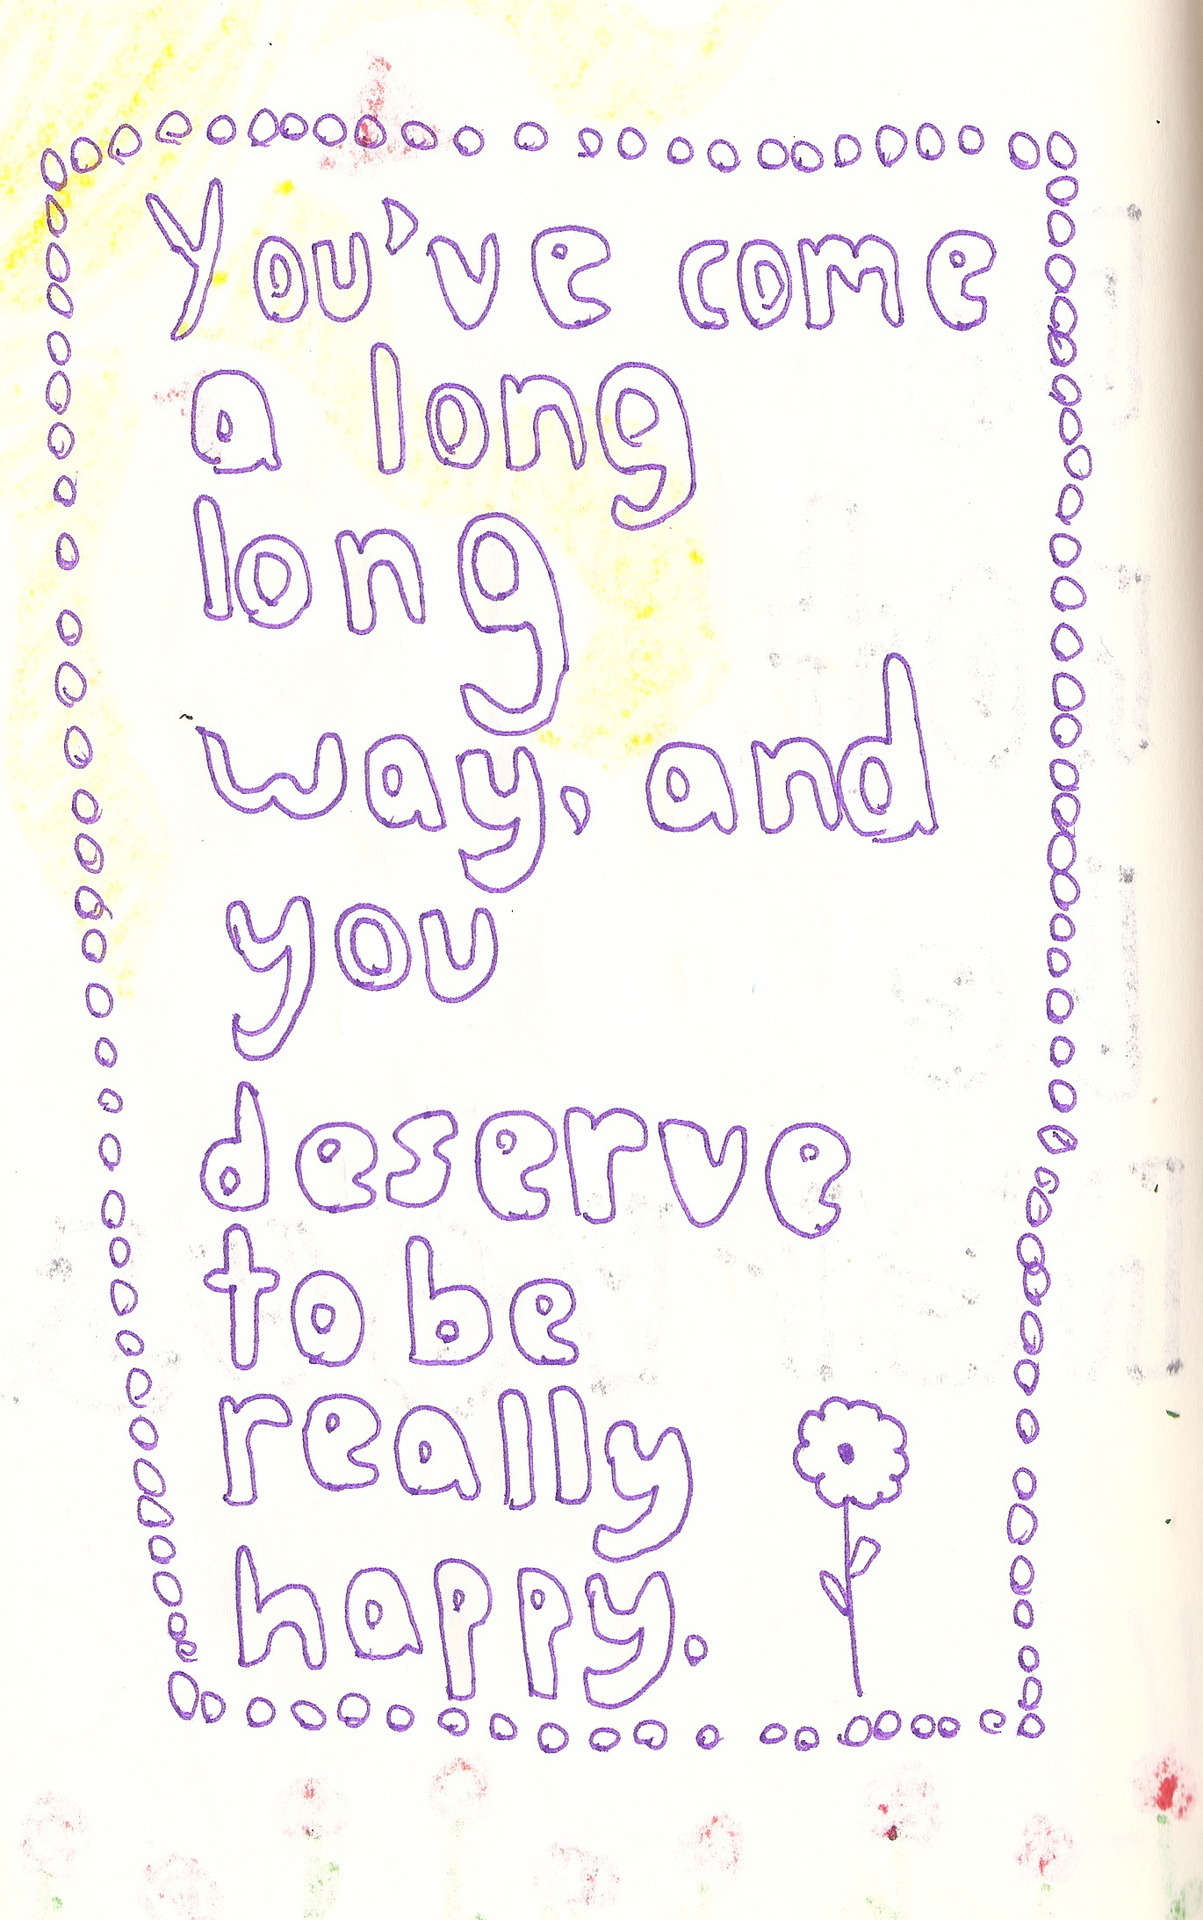 You've come
a long
long
way, and
you
deserve
to be
really
happy.